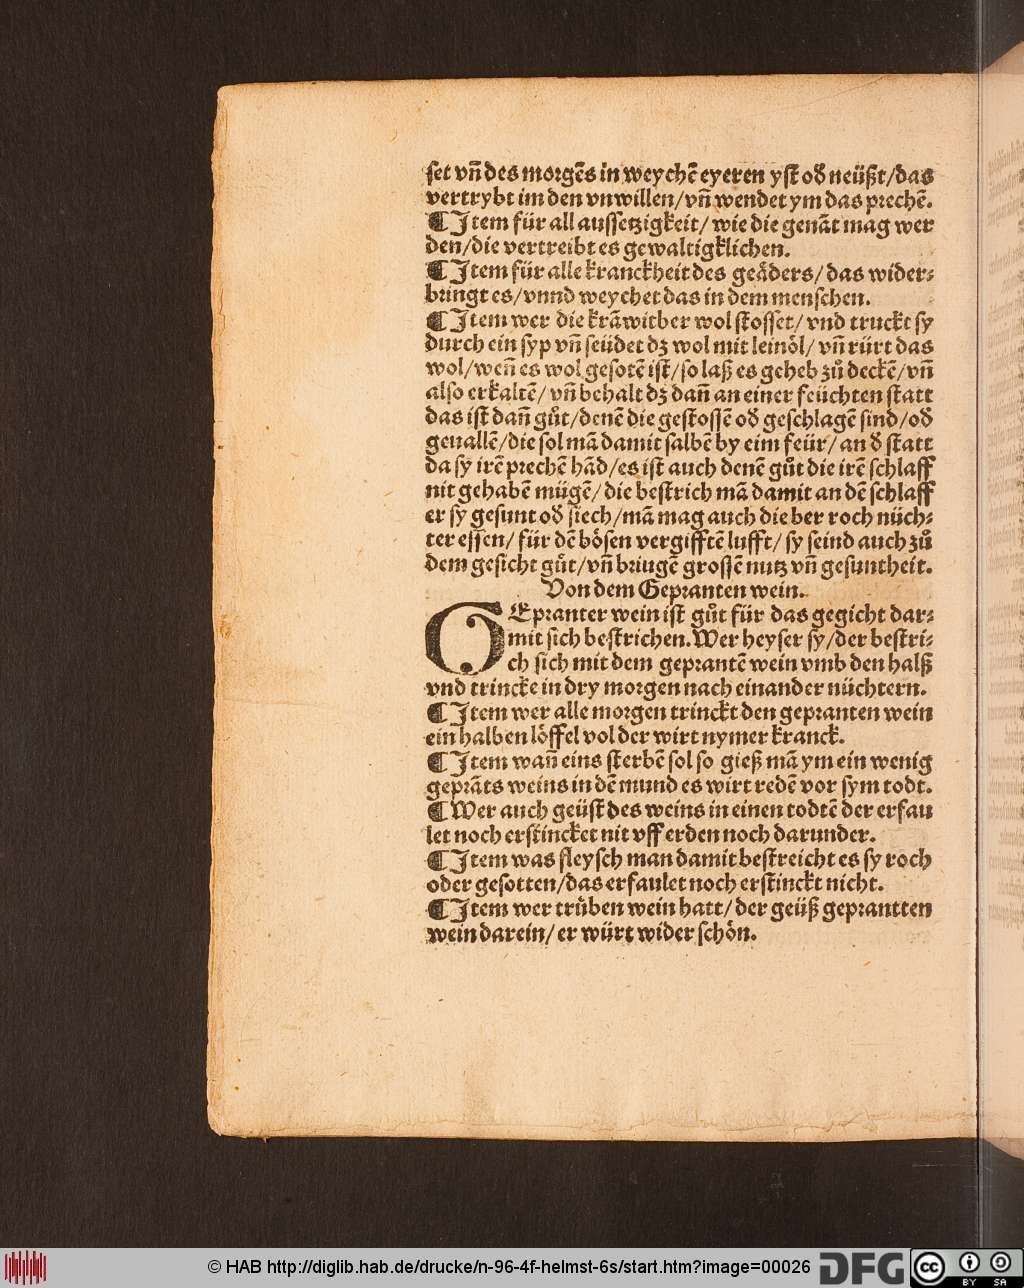 ſet vñ des morgẽs in weychẽ eyeren yſt od̕ neüßt/das
vertrybt im den vnwillen/vñ wendet ym das prechẽ.
¶ Item für all auſſetzigkeit/ wie die genãt mag wer
den/die vertreibt es gewaltigklichen.
¶ Item für alle kranckheit des geaͤders/das wider⸗
bringt es/vnnd weychet das in dem menſchen.
¶ Item wer die krãwitber wol ſtoſſet/ vnd truckt ſy
durch ein ſyp vñ ſeüdet dz wol mit leinoͤl/ vñ rürt das
wol/weñ es wol geſotẽ iſt/ſo laß es geheb zuͦ deckẽ/vñ
alſo erkaltẽ/ vñ behalt dz dañ an einer feüchten ſtatt
das iſt dañ guͦt/denẽ die geſtoſſẽ od̕ geſchlagẽ ſind/od̕
geuallẽ/die ſol mã damit ſalbẽ by eim feür/ an d̕ ſtatt
da ſy irẽ prechẽ hãd/es iſt auch denẽ guͦt die irẽ ſchlaff
nit gehabẽ mügẽ/die beſtrich mã damit an dẽ ſchlaff
er ſy geſunt od̕ ſiech/mã mag auch die ber roch nüch⸗
ter eſſen/ für dẽ boͤſen vergifftẽ lufft/ ſy ſeind auch zuͦ
dem geſicht guͦt/vñ briugẽ groſſẽ nutz vñ geſuntheit.
Von dem Gepranten wein.
GEpranter wein iſt guͦt für das gegicht dar⸗
mit ſich beſtrichen. Wer heyſer ſy/der beſtri⸗
ch ſich mit dem geprantẽ wein vmb den halß
vnd trincke in dry morgen nach einander nüchtern.
¶ Item wer alle morgen trinckt den gepranten wein
ein halben loͤffel vol der wirt nymer kranck.
¶ Item wañ eins ſterbẽ ſol ſo gieß mã ym ein wenig
geprãts weins in dẽ mund es wirt redẽ vor ſym todt.
¶ Wer auch geüſt des weins in einen todtẽ der erfau
let noch erſtincket nit vff erden noch darunder.
¶ Item was fleyſch man damit beſtreicht es ſy roch
oder geſotten/das erfaulet noch erſtinckt nicht.
¶ Item wer truͤben wein hatt/ der geüß geprantten
wein darein/ er würt wider ſchoͤn.
© HAB http://diglib.hab.de/drucke/n-96-4f-helmst-6s/start.htm?image=00026
DFG
cc
BY SA